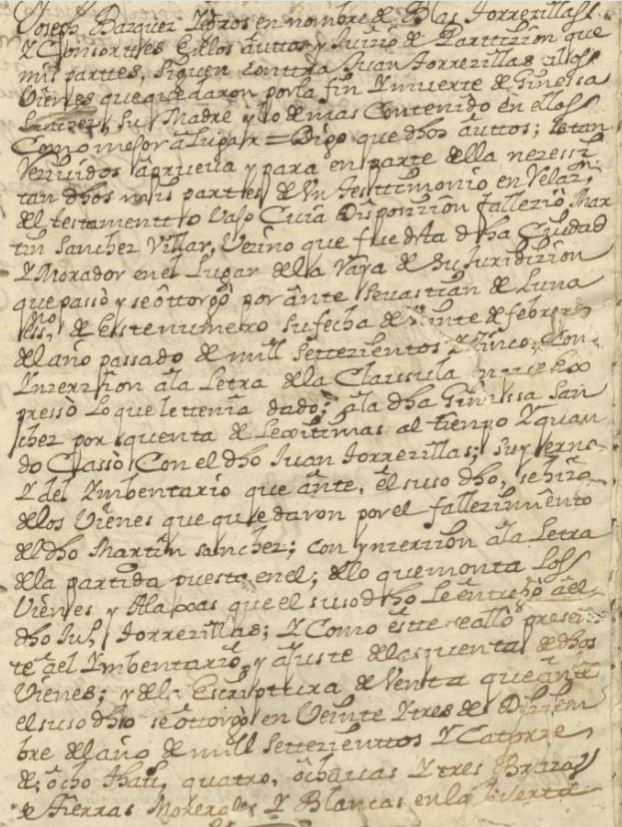 Joseph Bazquez Zdros en nombre de Blas Torrezillas
Y Consorttes en los auttos y Juizio de Parttizion que
mis parttes, siguen conttra Juan Torrezillas a los
Vienes que quedaron por la fin Y muerte de Ginessa
Sanchez, Su Madre y lo demas Contenido en ellos
Como mejor a Lugar = Digo que dhos auttos; estan
Rezivido aprueva y para en parte de ella nezessi
tan dhos mis partes de Un testtimonio en relazn
del testamentto Vajo Cuia Disposizion fallezio Mar
tin Sanchez Villar, Vezino que fue desta dha Ciudad
Y Morador en el Lugar de la Raya de su Juridizion
que passò y se òttorgò por ante Sevastian de Luna
essno de Este numero su fecha de Veinte de febrero
del año passado de mill Settezientos Y Zinco, Con
Ynzerzion a la Letra de la Clausula en que Ex
pressò Lo que le ttenia dado; a la dha Ginessa San
chez por quenta de Lexitimas al tiempo Y quan
do Cassò Con el dho Juan Torrezillas; su yerno
Y del Ymbentario que ante, el suso dho, se hizo
de los Vienes que quedaron por el fallezimiento
del dho Martin Sanchez; con ynzerzion a la Letra
de la partida puesta en el; de lo que monta Los
Vienes y Alaxas que el suso dho Le entregò a el
dho Jun Torrezillas; Y Como estte se allò presen
te a el Ymbentario, y ajuste de las quentas de dhos
Vienes; y de la Escripttura de Venta que ante
el suso dho se òttorgò en Veinte Y tres de Diziem
bre del año de mill Settezienttos Y Catorze
de; ocho thas, quatro, ochavas Y tres Brazas
de Tierras Morerales Y Blancas en la Huerta